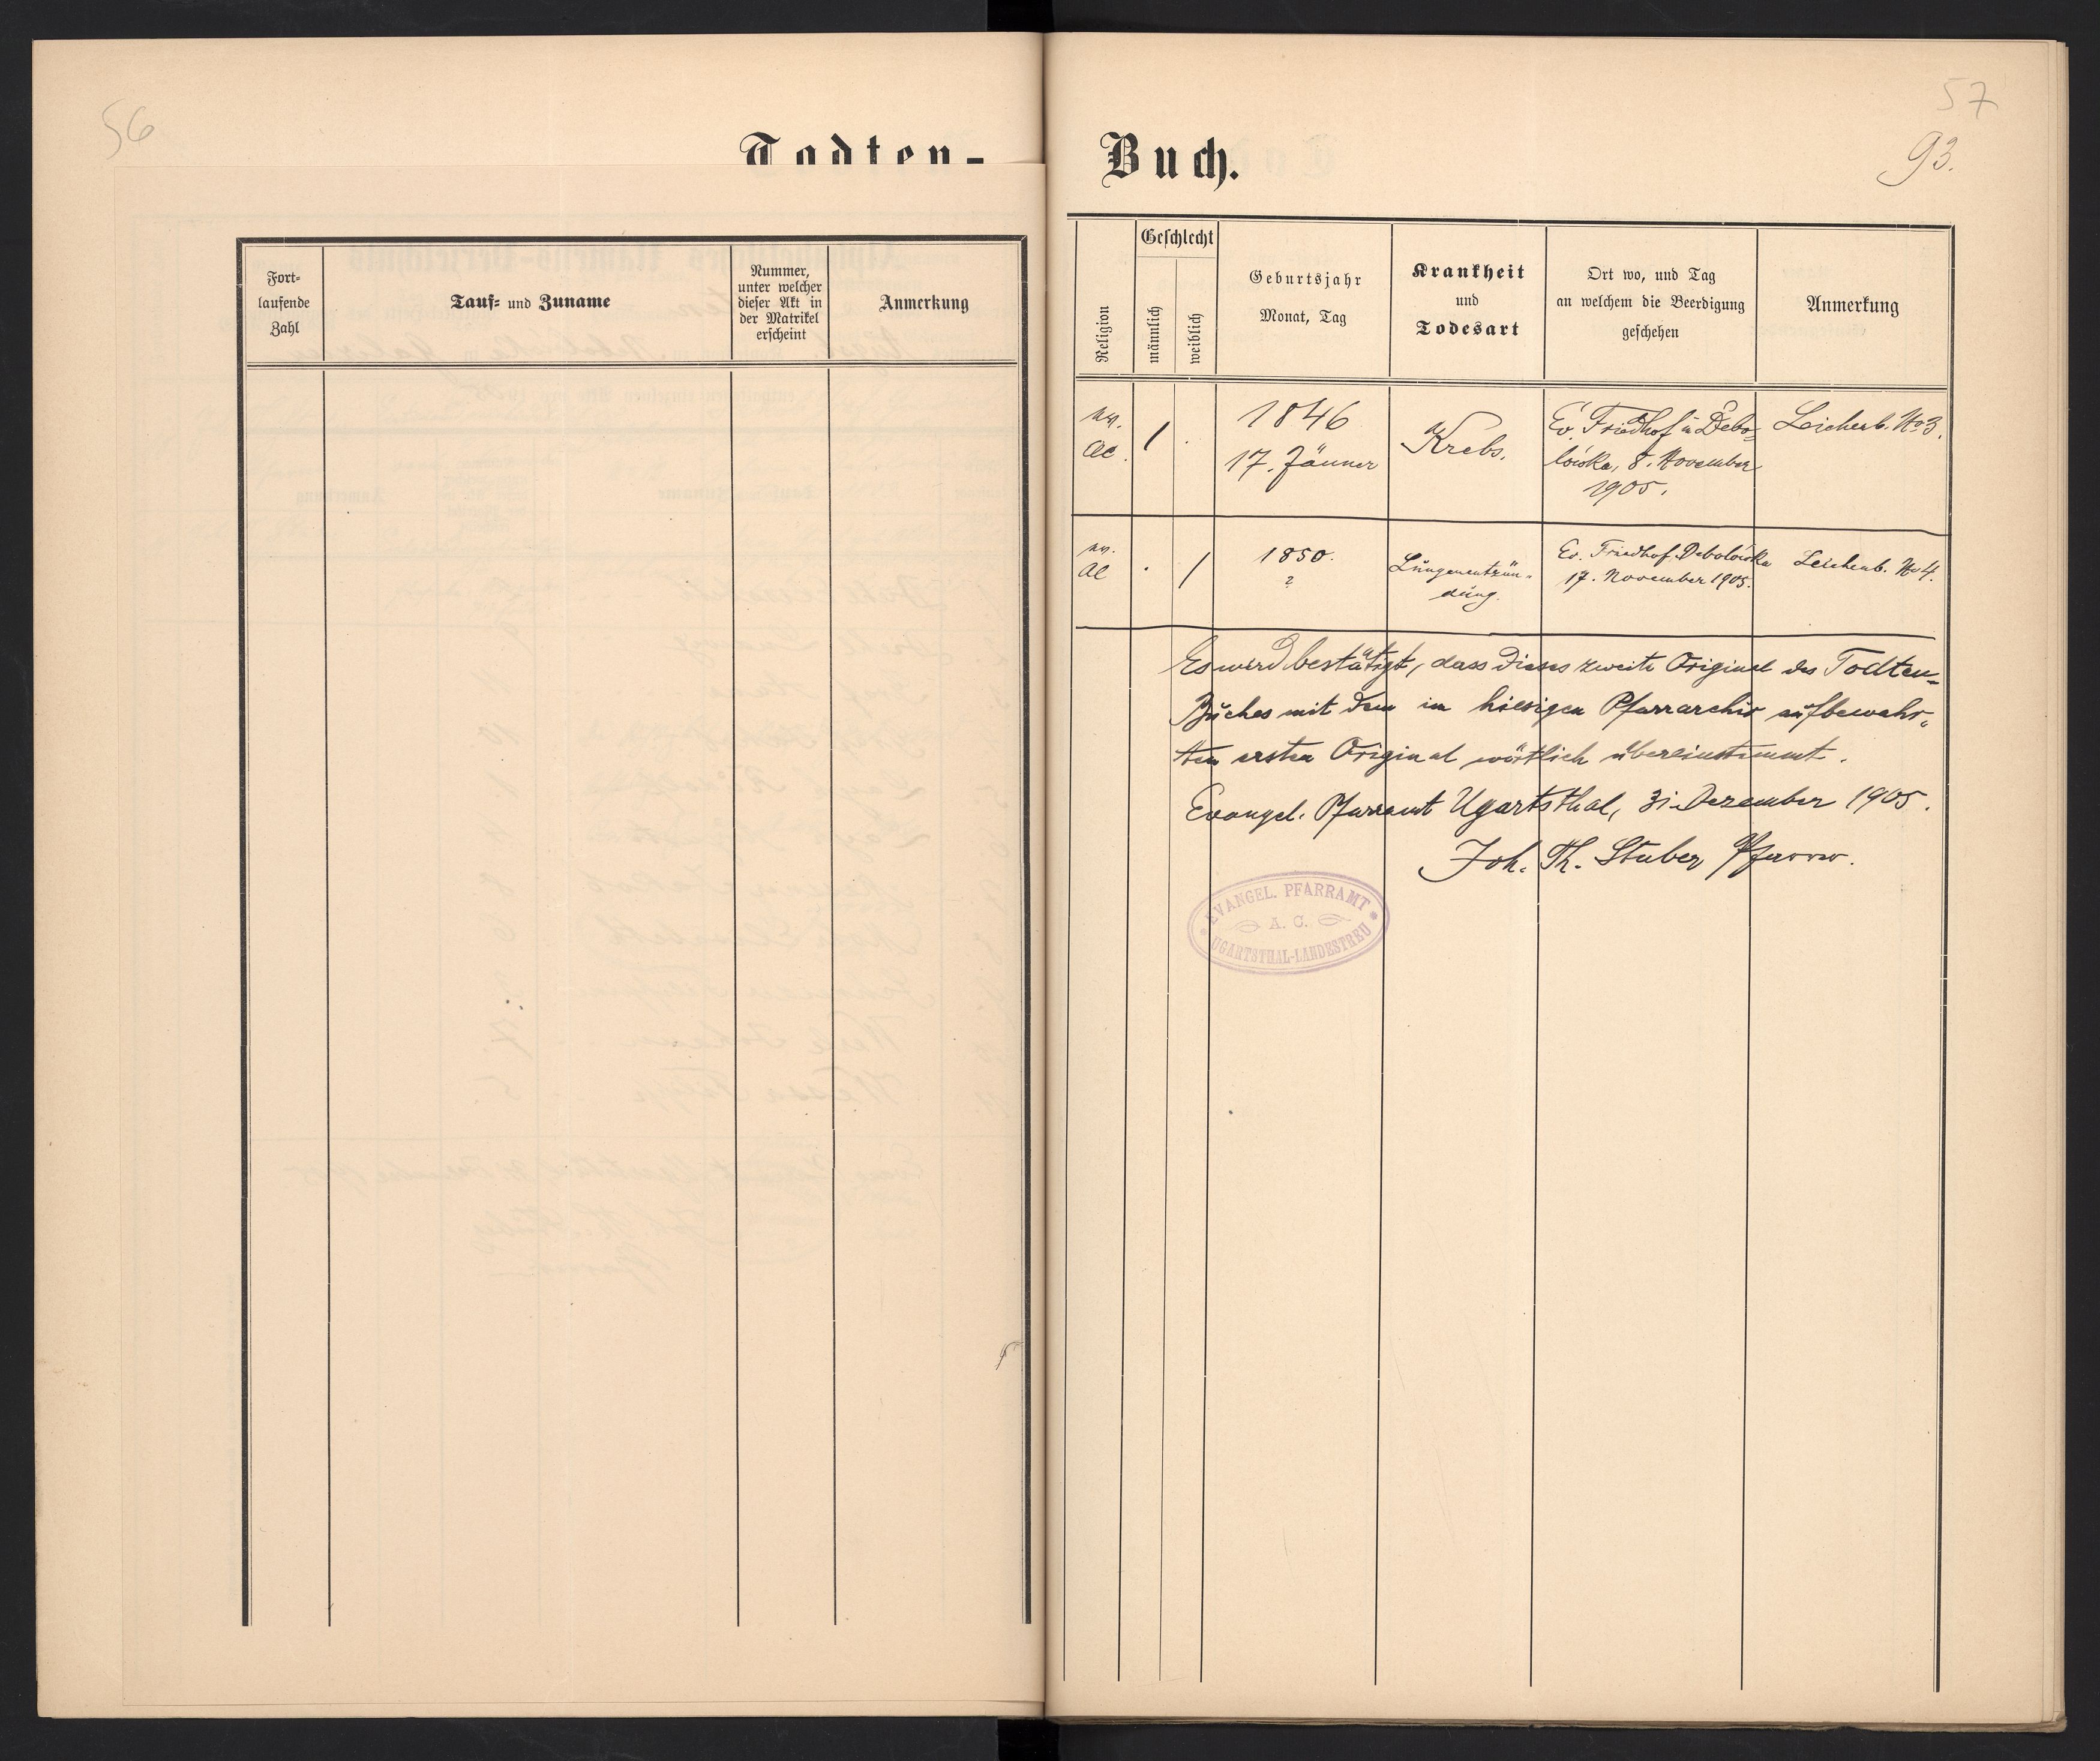 56
Todten-
Fort-
laufende
Zahl
Tauf- und Zuname
Nummer,
unter welcher
dieser Akt in
der Matrikel
erscheint
Anmerkung
57
93.
Buch.
Religion
Geschlecht
männlich
weiblich
Geburtsjahr
Monat, Tag
Krankheit
und
Todesart
Ort wo, und Tag
an welchem die Beerdigung
geschehen
Anmerkung
AC.
1
1846
17. Jänner
Krebs.
Ev. Friedhof in Debo-
lówka, 8. November
1905.
Leichenb. No 3.
AC
1
1850.
?
Lungenentzün-
dung.
Ev. Friedhof Debolówka
17. November 1905.
Leichenb. No 4.
Es wird bestätigt, dass dieses zweite Original des Todten-
Buches mit dem im hiesigen Pfarrarchiv aufbewahr-
ten ersten Original wörtlich übereinstimmt.
Evangel. Pfarramt Ugartsthal, 31. Dezember 1905.
Joh. Th. Stuber Pfarrer.
EVANGEL. PFARRAMT
A. C.
UGARTSTHAL-LANDESTREU